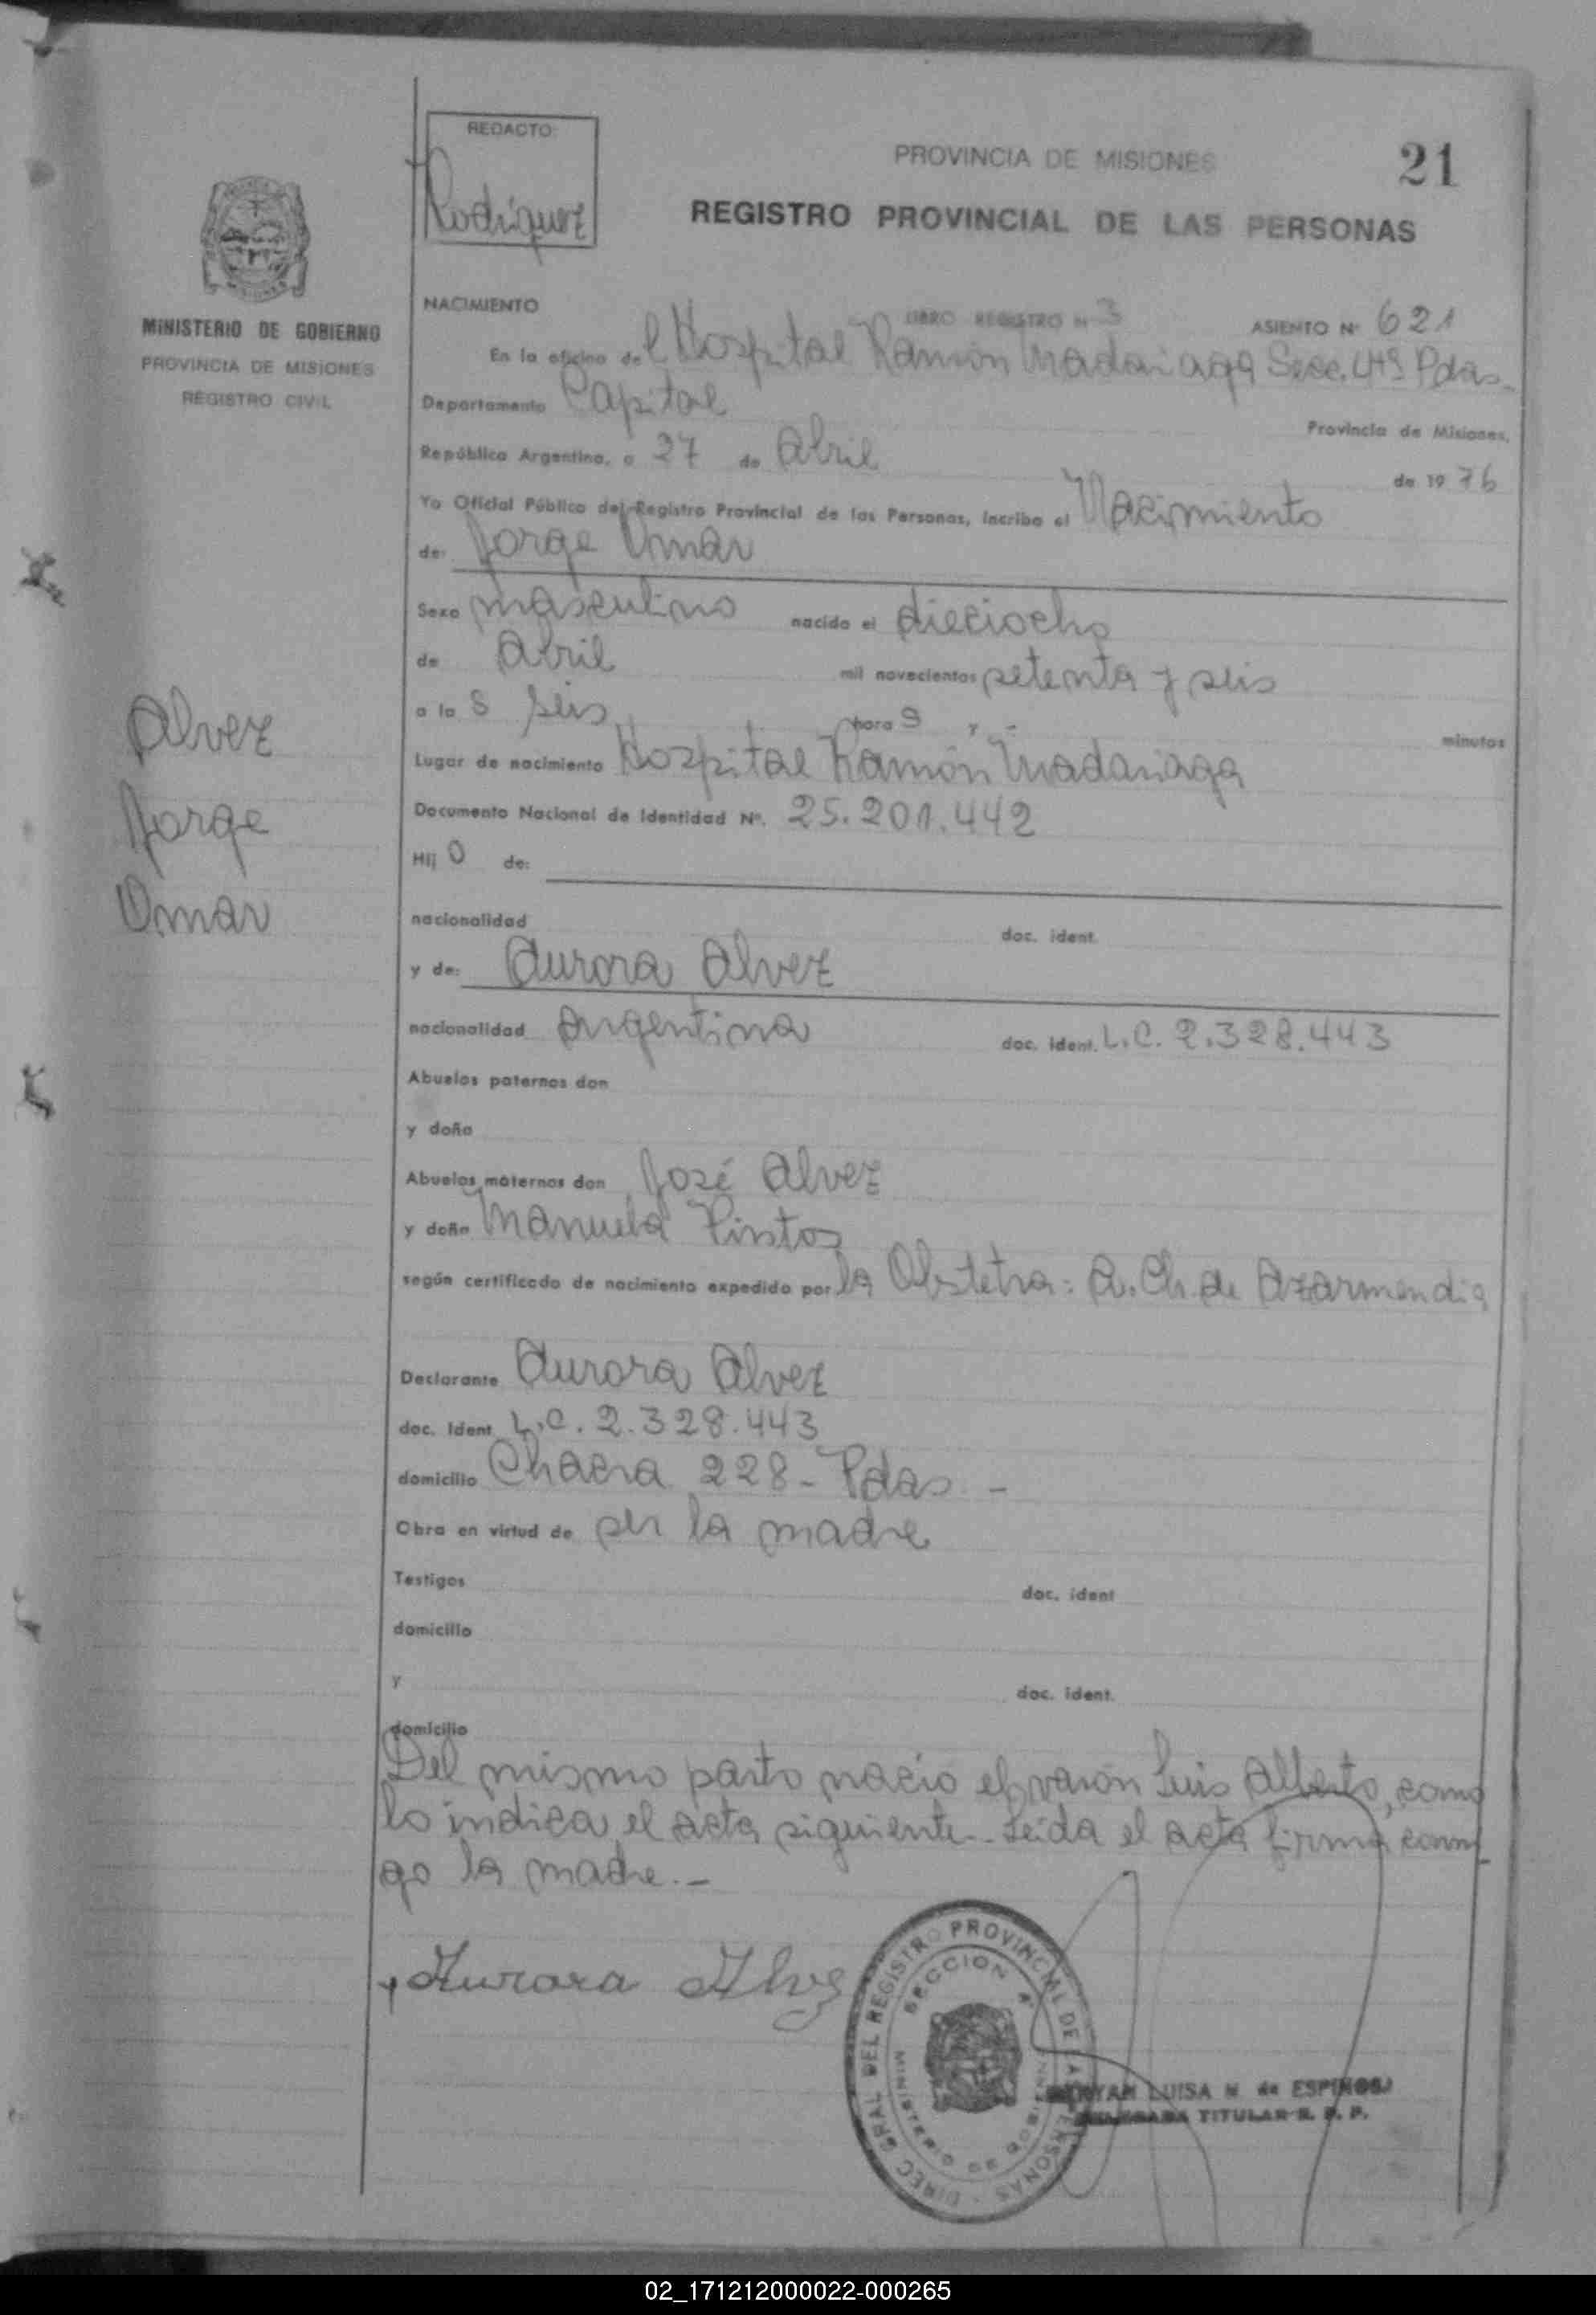 REDACTO:
Rodríguez
PROVINCIA DE MISIONES
21
REGISTRO PROVINCIAL DE LAS PERSONAS
MINISTERIO DE GOBIERNO
PROVINCIA DE MISIONES
REGISTRO CIVIL
NACIMIENTO
LIBRO REGISTRO Nº 3
ASIENTO Nº 621
En la oficina del Hospital Ramón Madariaga Secc. 4ta. Pdas.
Departamento Capital
Provincia de Misiones,
República Argentina, a 27 de Abril de 1976
Yo Oficial Público del Registro Provincial de las Personas, incribo el Nacimiento
de: Jorge Omar
Sexo masculino nacido el dieciocho
de Abril mil novecientos setenta y seis
a las seis horas y - minutos
Lugar de nacimiento Hospital Ramón Madariaga
Documento Nacional de Identidad Nº. 25.201.442
Hijo de:
nacionalidad doc. ident.
y de: Aurora Alvez
nacionalidad Argentina doc. ident. L.C. 2.328.443
Abuelos paternos don
y doña
Abuelos maternos don José Alvez
y doña Manuela Pintos
según certificado de nacimiento expedido por la Obstetra: A. Ch. de Azarmendia
Declarante Aurora Alvez
doc. Ident. L.C. 2.328.443
domicilio Chacra 228- Pdas. -
Obra en virtud de ser la madre
Testigos doc. ident
domicilio
y doc. ident.
domicilio
Del mismo parto nació el varón Luis Alberto, como
lo indica el acta siguiente. Leída el acta firma conmi
go la madre.-
Alvez
Jorge
Omar
Aurora Alvez
DIREC. GRAL DEL REGISTRO PROVINCIAL DE LAS PERSONAS
SECCION 4ª
MINISTERIO DE GOBIERNO
LUISA M. de ESPINOSA
DELEGADA TITULAR R. P. P.
02_171212000022-000265